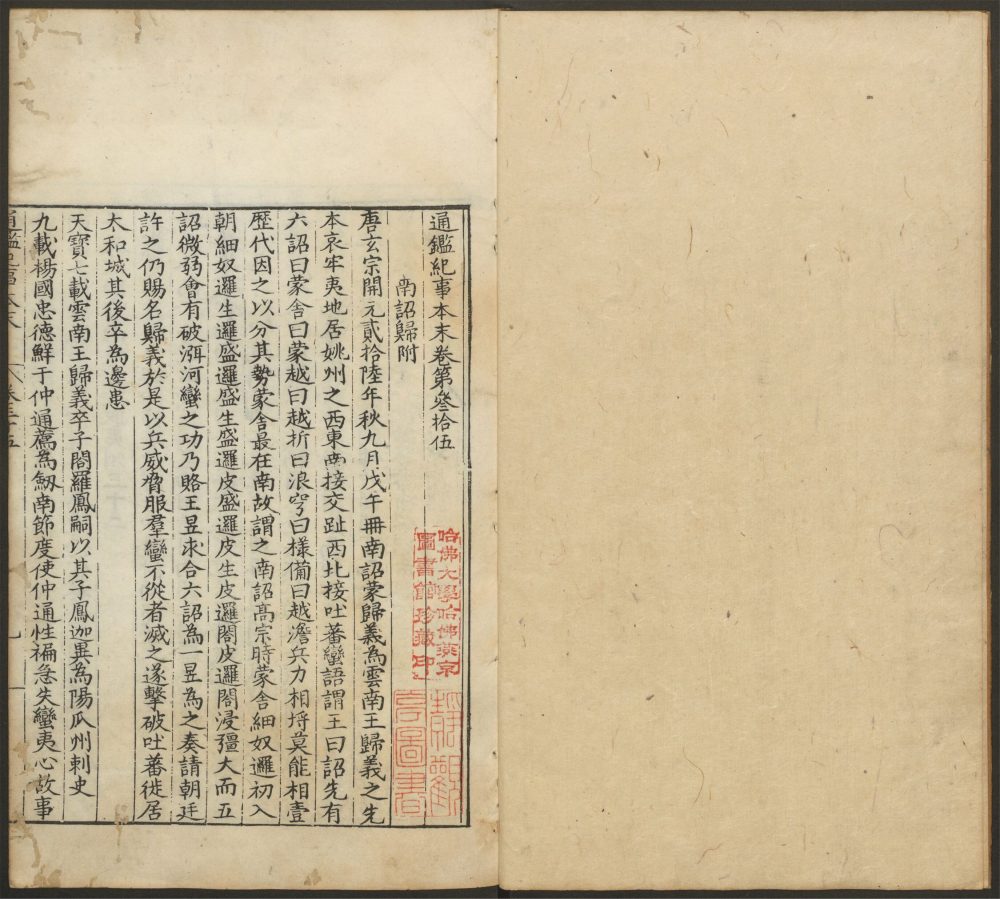 通鑑紀事本末卷第叄拾伍
南詔歸附
唐玄宗開元貳拾陸年秋九月戊午冊南詔蒙歸義為雲南王歸義之先
本哀牢夷地居姚州之西東南接交趾西北接吐蕃蠻語謂王曰詔先有
六詔曰蒙舍曰蒙越曰越折曰浪穹曰樣備曰越澹兵力相埒莫能相壹
歷代因之以分其勢蒙舍最在南故謂之南詔高宗時蒙舍細奴邏初入
朝細奴邏生邏盛邏盛生盛邏皮盛邏皮生皮邏閤皮邏閤浸彊大而五
詔微弱會有破洱河蠻之功乃賂王昱求合六詔為一昱為之奏請朝廷
許之仍賜名歸義於是以兵威脅服羣蠻不從者滅之遂擊破吐蕃徙居
太和城其後卒為邊患
天寶七載雲南王歸義卒子閤羅鳳嗣以其子鳳迦異為陽瓜州刺史
九載楊國忠德鮮于仲通薦為劒南節度使仲通性褊急失蠻夷心故事
哈佛大學哈佛燕京
圖書館珍藏印